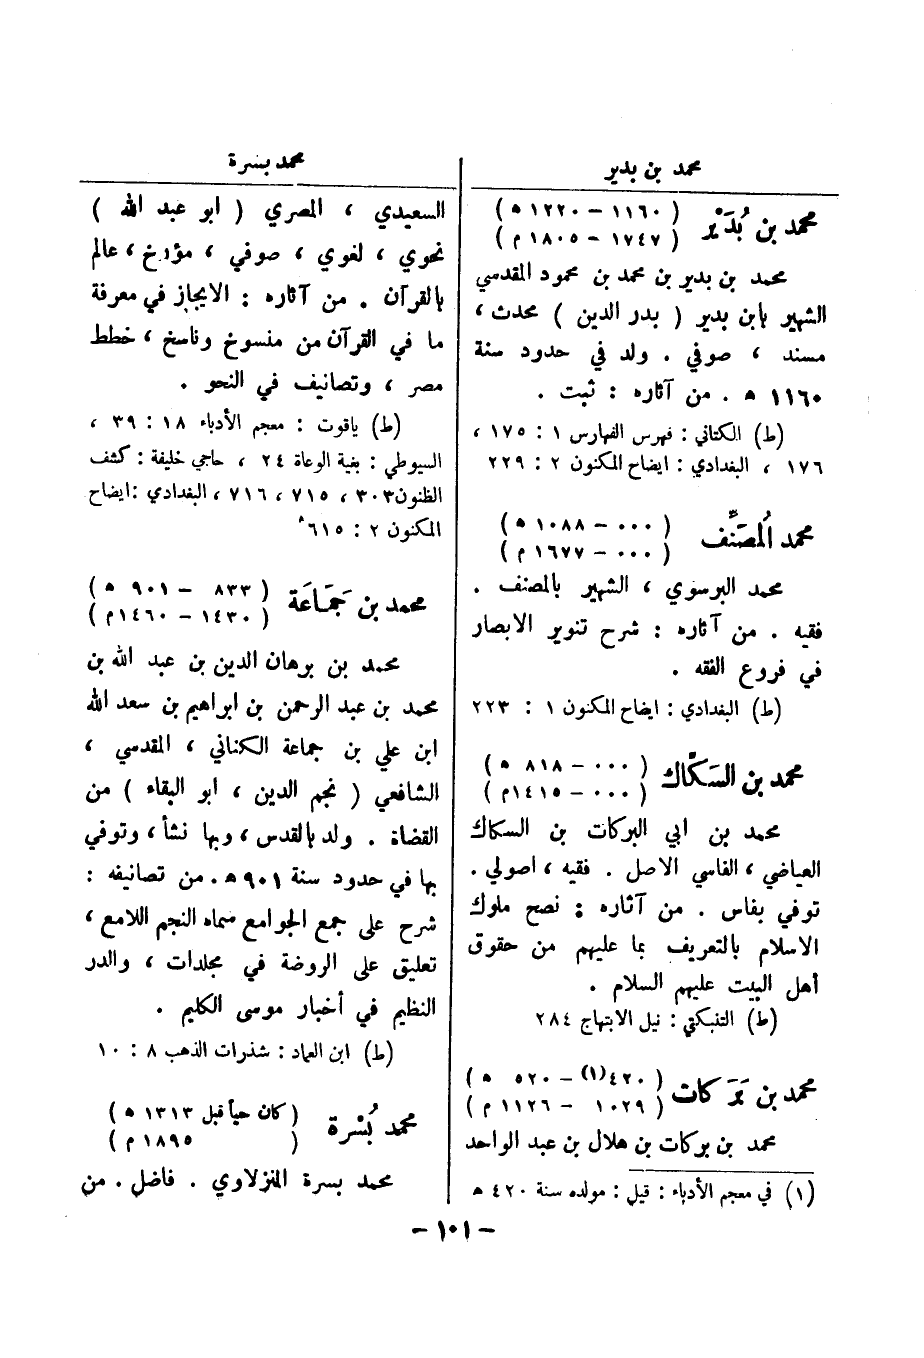 محمد بن بدير
محمد بن بُدَيْر ( ١١٦٠ – ١٢٢٠ ه )
( ١٧٤٧ – ١٨٠٥ م )
محمد بن بدير بن محمد بن محمود المقدسي
الشهير بابن بدير ( بدر الدين ) محدث ،
مسند ، صوفي . ولد في حدود سنة
١١٦٠ ه . من آثاره : ثبت .
(ط) الكتاني : فهرس الفهارس ١ : ١٧٥ ،
١٧٦ ، البغدادي : ايضاح المكنون ٢ : ٢٢٩
محمد المُصَنِّف ( ٠٠٠ – ١٠٨٨ ه )
( ٠٠٠ – ١٦٧٧ م )
محمد البرسوي ، الشهير بالمصنف .
فقيه . من آثاره : شرح تنوير الابصار
في فروع الفقه .
(ط) البغدادي : ايضاح المكنون ١ : ٢٢٣
محمد بن السَكّاك ( ٠٠٠ – ٨١٨ ه )
( ٠٠٠ – ١٤١٥ م )
محمد بن ابي البركات بن السكاك
العياضي ، الفاسي الاصل . فقيه ، اصولي .
توفي بفاس . من آثاره : نصح ملوك
الاسلام بالتعريف بما عليهم من حقوق
أهل البيت عليهم السلام .
(ط) التنبكتي : نيل الابتهاج ٢٨٤
محمد بن بَرَكات ( ٤٢٠(١) – ٥٢٠ ه )
( ١٠٢٩ – ١١٢٦ م )
محمد بن بركات بن هلال بن عبد الواحد
(١) في معجم الأدباء : قيل : مولده سنة ٤٢٠ ه
محمد بسرة
السعيدي ، المصري ( ابو عبد الله )
نحوي ، لغوي ، صوفي ، مؤرخ ، عالم
بالقرآن . من آثاره : الايجاز في معرفة
ما في القرآن من منسوخ وناسخ ، خطط
مصر ، وتصانيف في النحو .
(ط) ياقوت : معجم الأدباء ١٨ : ٣٩ ،
السيوطي : بغية الوعاة ٢٤ ، حاجي خليفة : كشف
الظنون ٣٠٣ ، ٧١٥ ، ٧١٦ ، البغدادي : ايضاح
المكنون ٢ : ٦١٥
محمد بن جَمَاعَة ( ٨٣٣ – ٩٠١ ه )
( ١٤٣٠ – ١٤٦٠ م )
محمد بن برهان الدين بن عبد الله بن
محمد بن عبد الرحمن بن ابراهيم بن سعد الله
ابن علي بن جماعة الكناني ، المقدسي ،
الشافعي ( نجم الدين ، ابو البقاء ) من
القضاة . ولد بالقدس ، وبها نشأ ، وتوفي
بها في حدود سنة ٩٠١ ه . من تصانيفه :
شرح على جمع الجوامع سماه النجم اللامع ،
تعليق على الروضة في مجلدات ، والدر
النظيم في أخبار موسى الكليم .
(ط) ابن العماد : شذرات الذهب ٨ : ١٠
محمد بُسْرة ( كان حياً قبل ١٣١٣ ه )
( ١٨٩٥ م )
محمد بسرة المنزلاوي . فاضل . من
– ١٠١ –